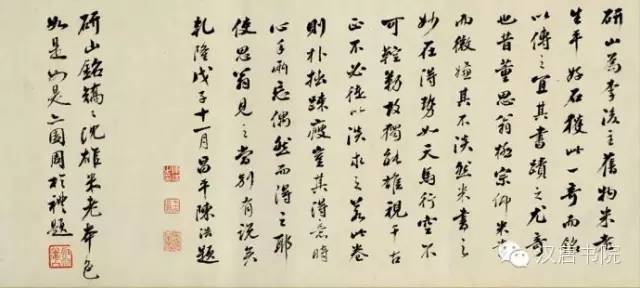 研山為李後主舊物米老
生平好石獲此一奇而銘
以傳之宜其書蹟之尤奇
也昔董思翁極宗仰米書
而微嫌其不淡然米書之
妙在得勢如天馬行空不
可鞚勒故獨能雄視千古
正不必徒以淡求之若此卷
則朴拙疎瘦豈其得意時
心手兩忘偶然而得之耶
使思翁見之當別有說矣
乾隆戊子十一月昌平陳浩題
研山銘鐫之沈雄米老本色
如是如是亡國周於禮題
汉唐书院